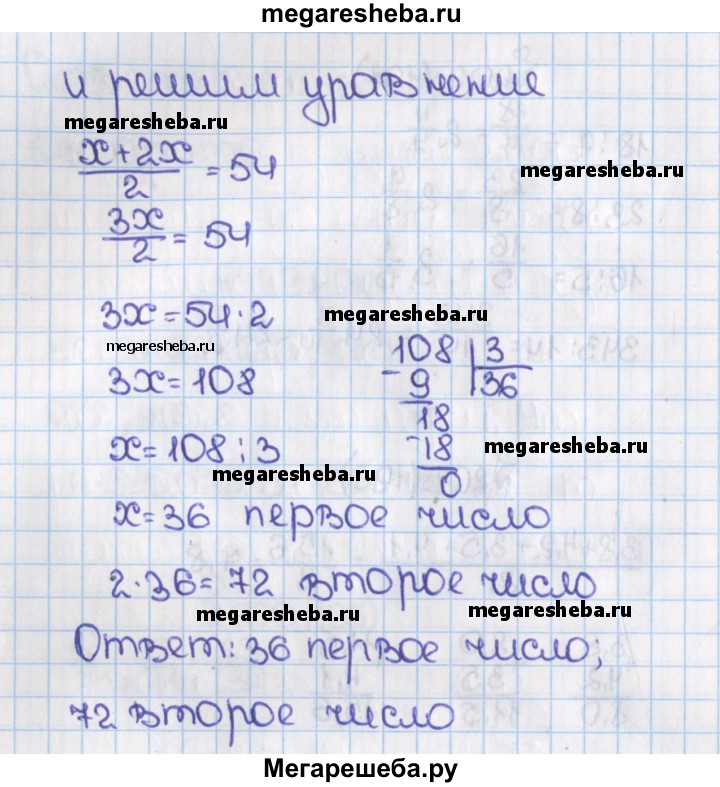 megaresheba.ru
и решим уравнение
megaresheba.ru
x+2x
/2 = 54
megaresheba.ru
3x/2 = 54
3x=54·2
megaresheba.ru
megaresheba.ru
108 | 3
- 9 36
3x=108
18
x=108:3
-18
megaresheba.ru
megaresheba.ru
0
x=36 первое число
2·36=72 второе число
megaresheba.ru
megaresheba.ru
Ответ: 36 первое число;
72 второе число
Мегарешеба.ру